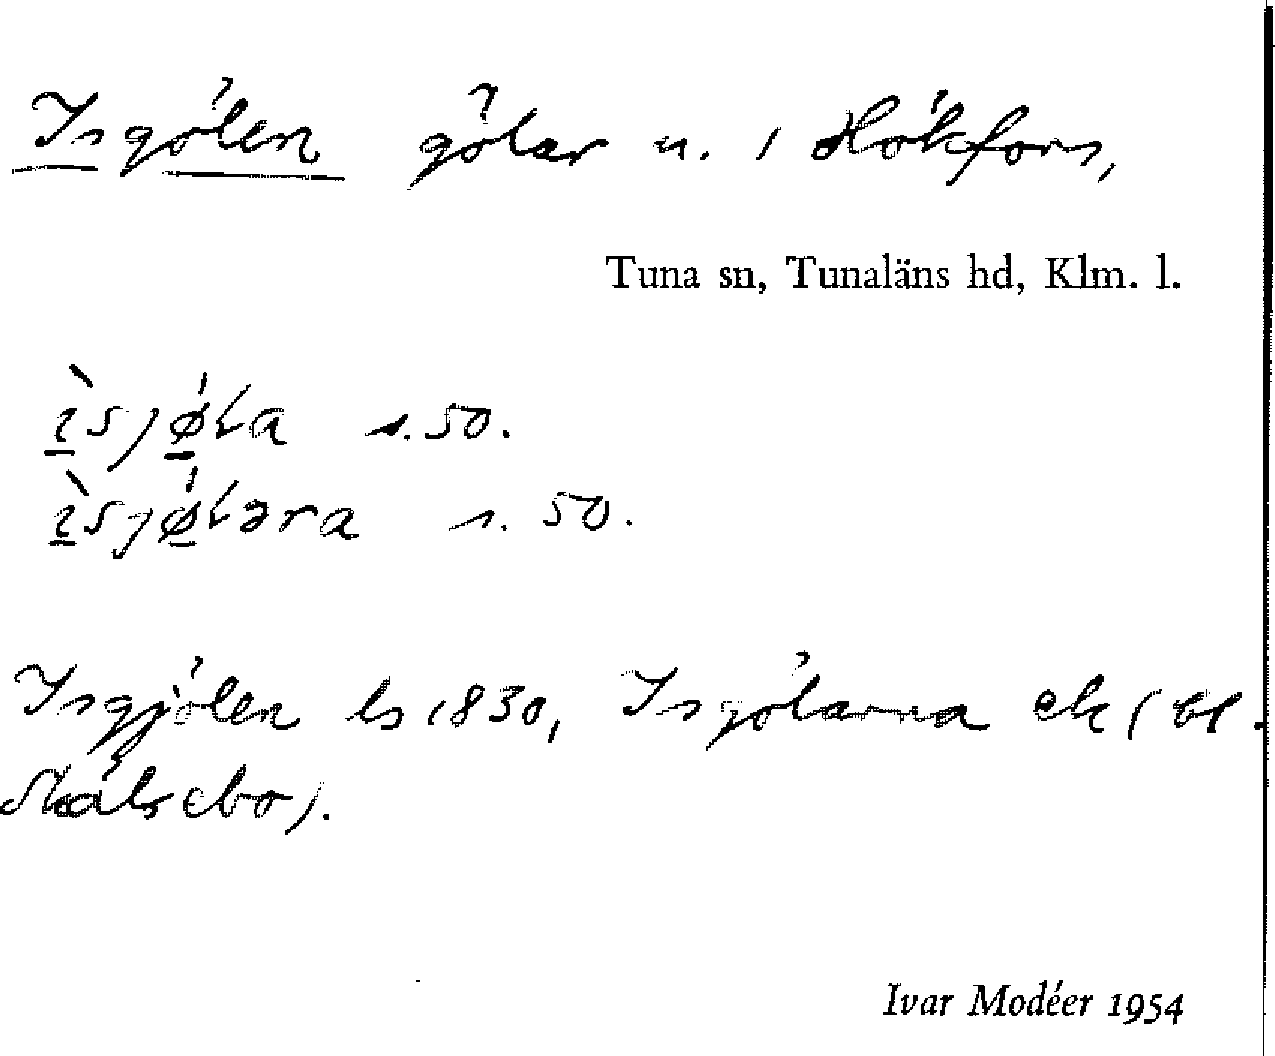 Isgölen gölar n. i Hökfors,
Tuna sn, Tunaläns hd, Klm. l.
ı̀sjø̍ʟa s. 50.
ı̀sjø̍ʟəra s. 50.
Isgjölen ls 1830, Isgölarna ek (bl.
Skälsebo).
Ivar Modéer 1954